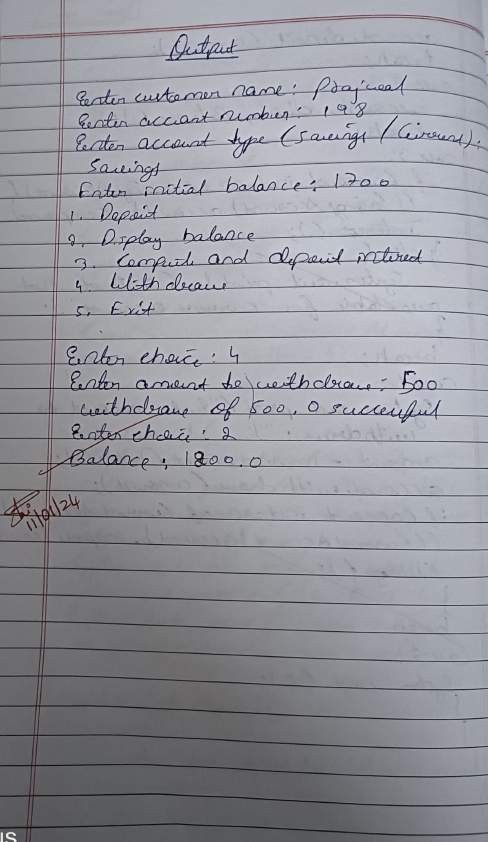 Output
Enter customer name: Prajwal
Enter account number: 198
Enter account type (Savings / Current):
Savings
Enter initial balance: 1700
1. Deposit
2. Display balance
3. Compute and deposit interest
4 Withdraw
5. Exit
Enter choice: 4
Enter amount to withdraw: 500
withdraw of 500.0 successful
Enter choice: 2
Balance: 1200.0
11/01/24
IS